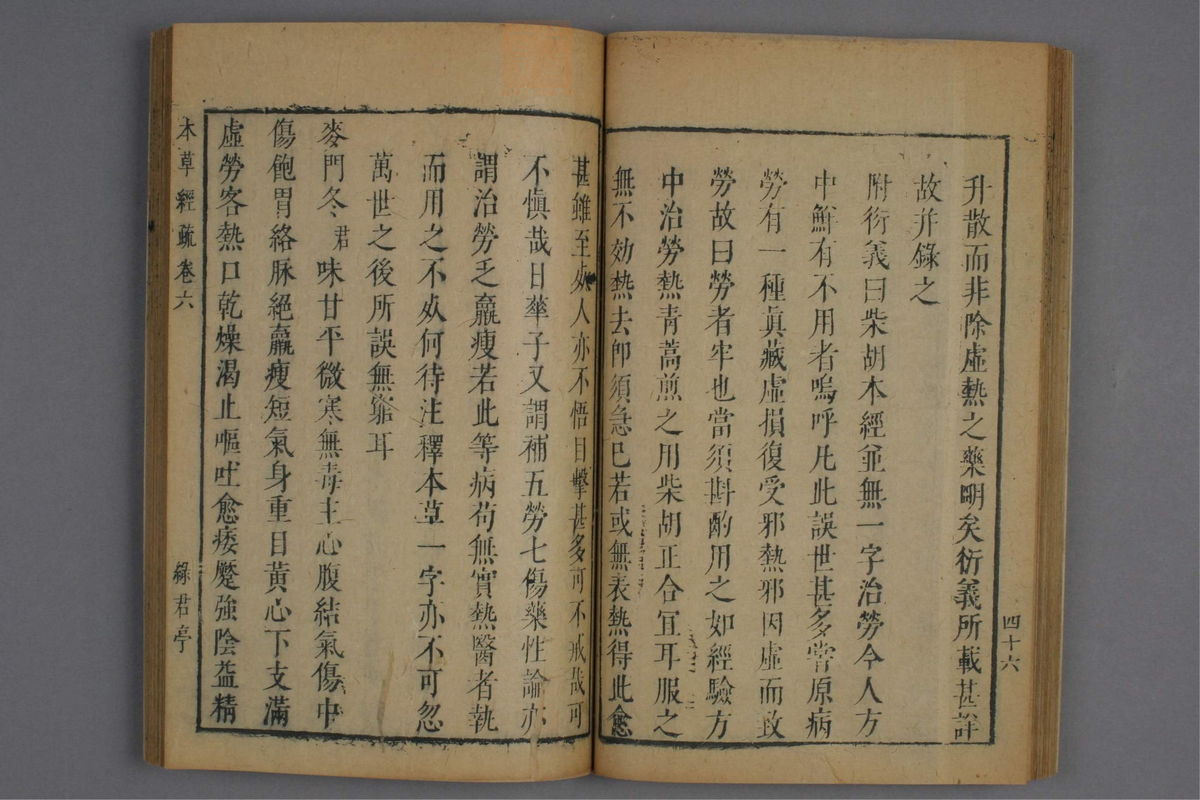 四十六
升散而非除虛熱之藥明矣衍義所載甚詳
故并錄之
附衍義曰柴胡本經並無一字治勞今人方
中鮮有不用者嗚呼凡此誤世甚多嘗原病
勞有一種眞藏虛損復受邪熱邪因虛而致
勞故曰勞者牢也當須斟酌用之如經驗方
中治勞熱青蒿煎之用柴胡正合宜耳服之
無不効熱去卽須急已若或無表熱得此愈
甚雖至死人亦不悟目擊甚多可不戒哉可
不愼哉日華子又謂補五勞七傷藥性論亦
謂治勞乏羸瘦若此等病苟無實熱醫者執
而用之不死何待注釋本草一字亦不可忽
萬世之後所誤無窮耳
麥門冬君味甘平微寒無毒主心腹結氣傷中
傷飽胃絡脉絕羸瘦短氣身重目黃心下支滿
虛勞客熱口乾燥渴止嘔吐愈痿蹷強陰益精
本草經疏 卷六 綠君亭